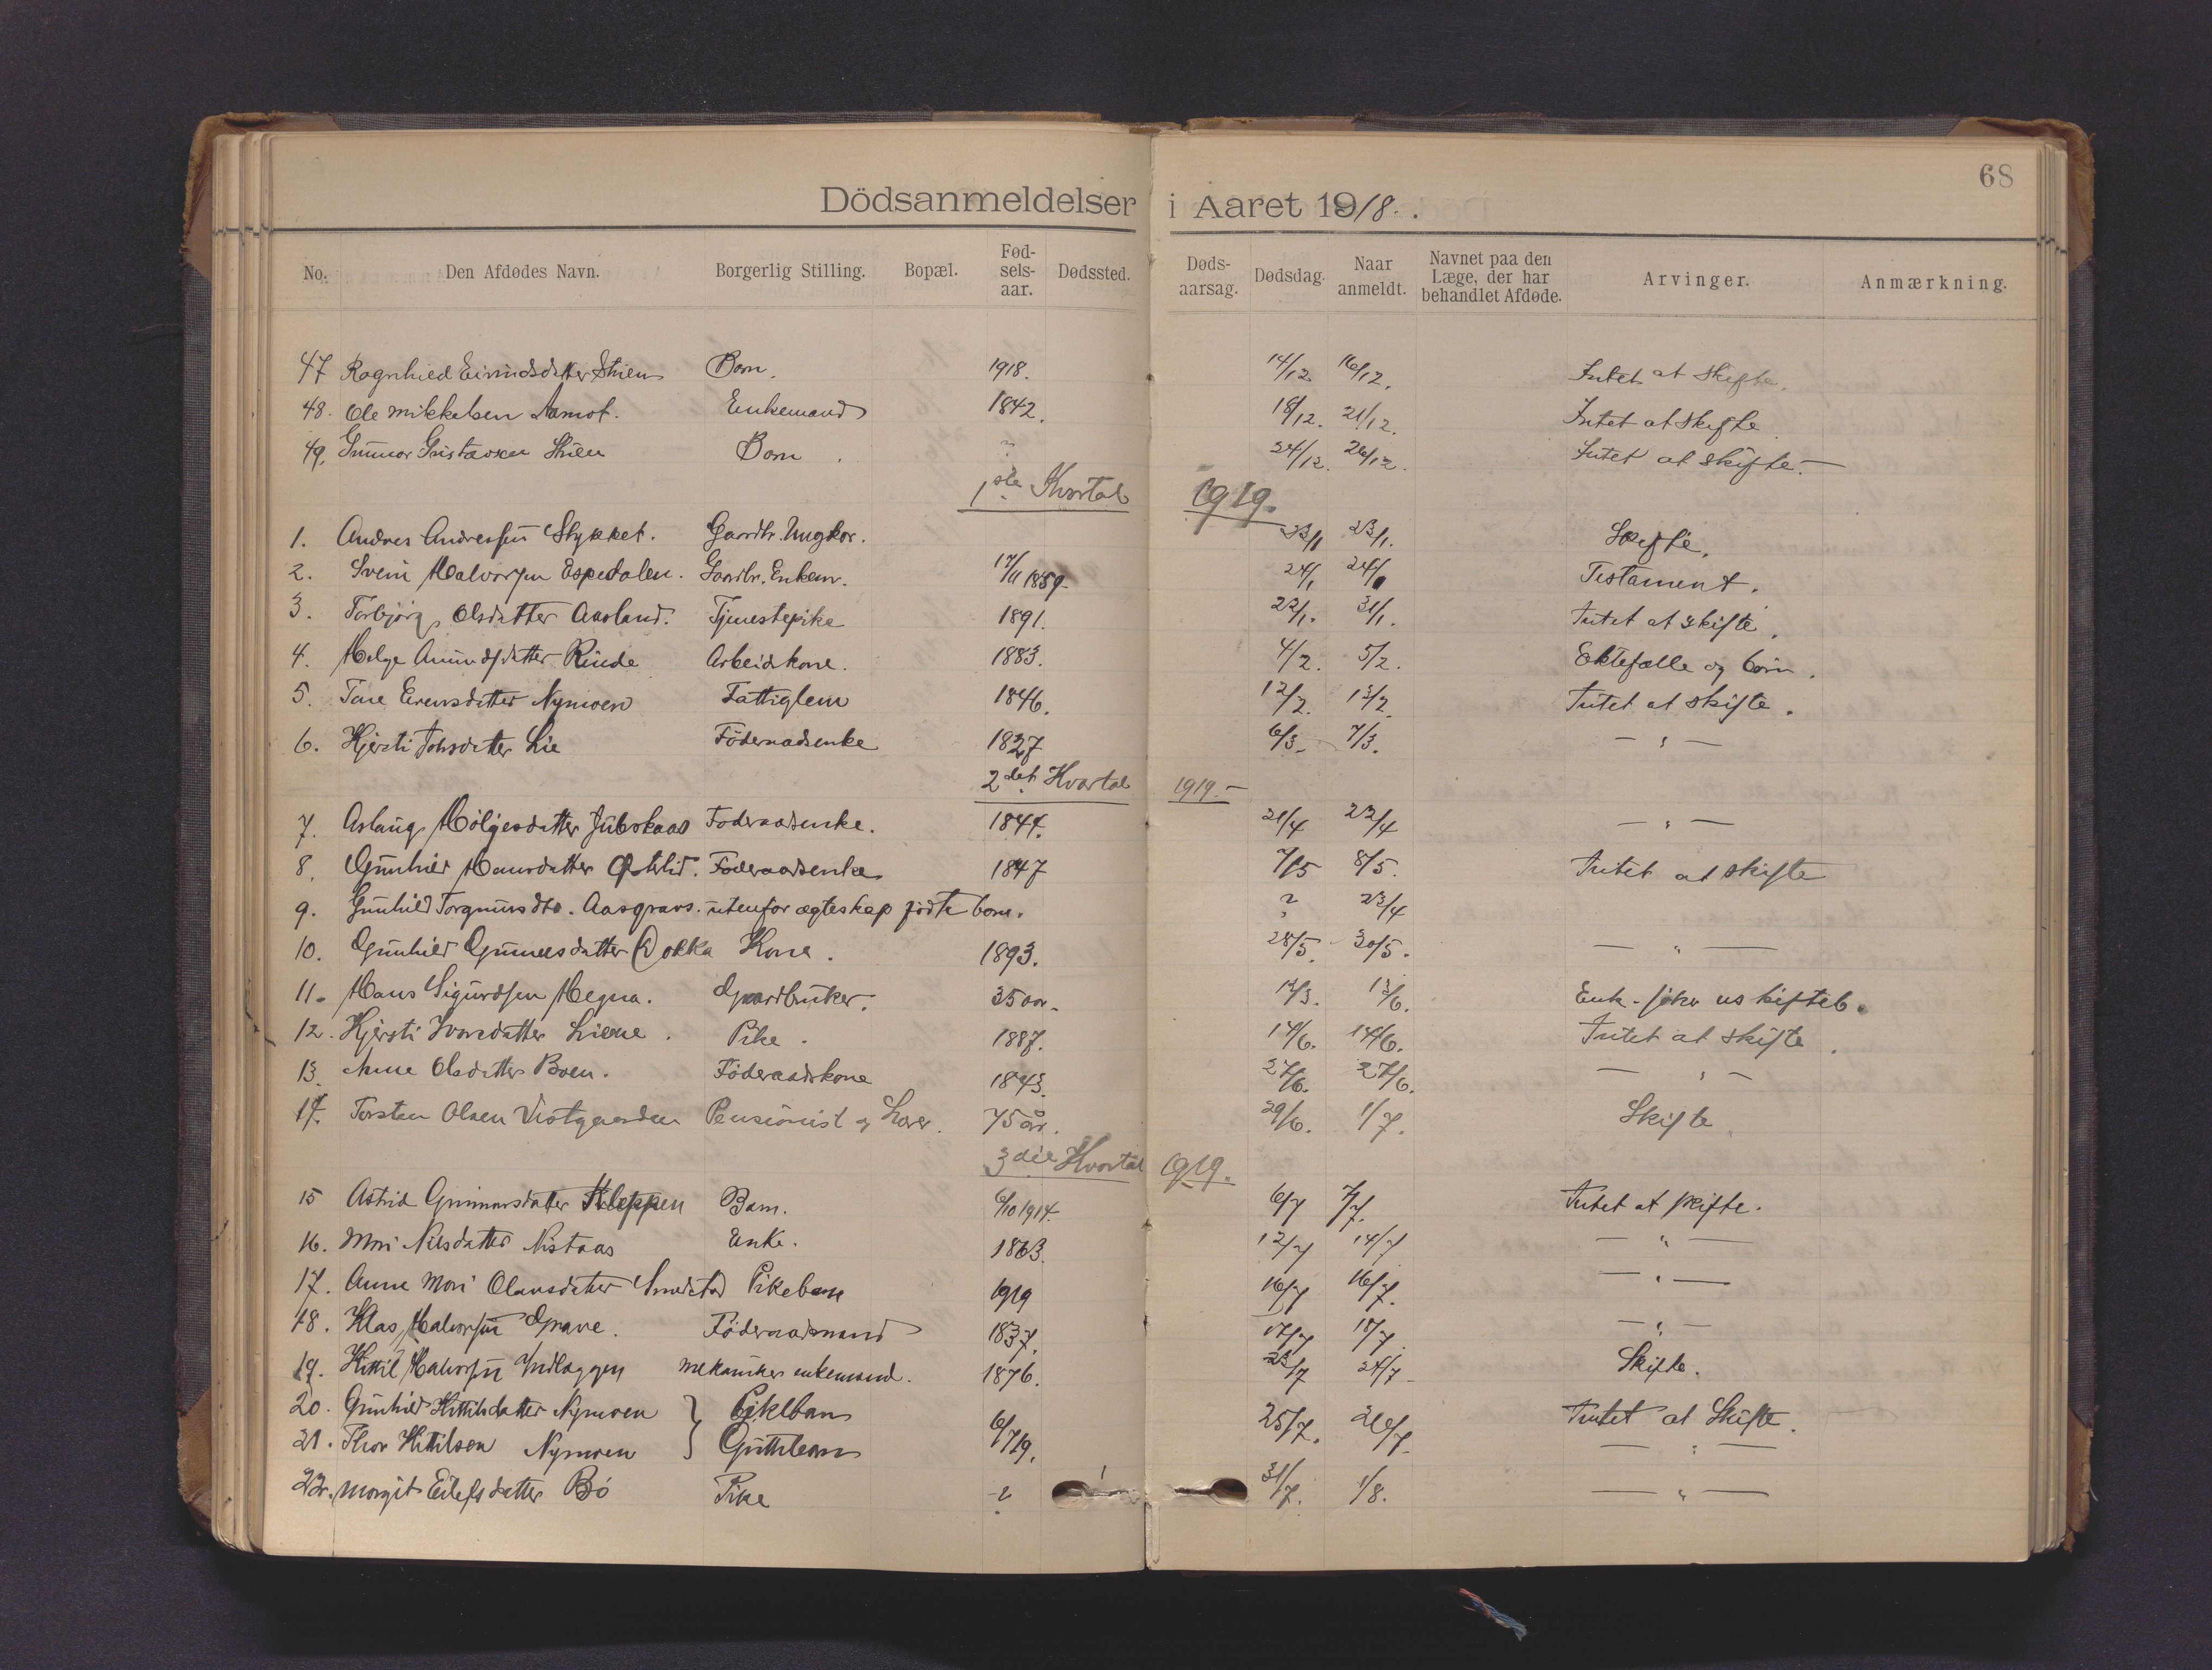 68
Dödsanmeldelser i Aaret 1918.
No. Den Afdødes Navn. Borgerlig Stilling. Bopæl. Fødselsaar. Dødssted. Dødsaarsag. Dødsdag. Naar anmeldt. Navnet paa den Læge, der har behandlet Afdøde. Arvinger. Anmærkning.
47 Ragnhild Eivindsdatter Skien Barn. 1918. 14/12 16/12. Intet at skifte.
48. Ole Mikkelsen Aamot. Enkemand 1842. 18/12. 21/12. Intet at skifte
49. Gunnar Gustavsen Skien Barn. " 24/12. 26/12. Intet at skifte.
1ste Kvartal 1919.
1. Andres Andressen Stykket. Gardbr. Ungkar. 23/1 23/1. Skifte.
2. Svein Halvorsen Espedalen. Gardbr. Enkem. 17/11 1859 24/1 24/1 Testament.
3. Torbjörg Olsdatter Aasland. Tjenestepike 1891. 22/1. 31/1. Intet at skifte.
4. Helge Amundsdatter Rinde Arbeidkone. 1883. 4/2. 5/2. Ektefælle og börn.
5. Tone Evensdatter Nymoen Fattiglem 1846. 12/2. 13/2 Intet at skifte.
6. Kjersti Johsdatter Lie Föderaadsenke 1827 6/3. 7/3. — " —
2det Kvartal 1919.-
7. Aslaug Hölgesdatter Juvskaas Foderaadsenke. 1844. 21/4 22/4 — " —
8. Gunhild Hansdatter Föderaadsenke 1847 7/5 8/5. Intet at skifte
9. Gunhild Torgrims dtr. utenfor ægteskap födte barn. ? 23/4
10. Gunhild Gunnersdatter Dokka Kone. 1893. 28/5. 30/5. — " —
11. Hans Sigurdsen Megna. Gaardbruker. 35 aar. 12/3. 13/6. Enk. uskiftet.
12. Kjersti Ivarsdatter Liene. Pike. 1887. 14/6. 14/6. Intet at skifte.
13. Anne Olsdatter Boen. Föderaadskone 1843. 27/6. 27/6. — " —
14. Torsten Olsen Pensionist og Lærer. 75 år. 29/6. 1/7. Skifte
3die Kvartal 1919.
15 Astrid Gunnarsdatter Kleppen Barn. 6/10 1914. 6/7 7/7. Intet at skifte.
16. Mari Nilsdatter Nistaas Enke. 1863. 12/7 14/7 — " —
17. Anne Mari Olavsdatter Pikebarn 1919 16/7 16/7. — " —
18. Klas Halvorsen Grave. Föderaadsmand 1837. 17/7 18/7. — " —
19. Kittil Halvorsen mekaniker enkemand. 1876. 23/7 24/7 Skifte.
20. Gunhild Kittilsdatter Nymoen } Pikebarn 25/7. 26/7 Intet at Skifte.
21. Thor Kittilsen Nymoen } Guttebarn 6/7 19. — " —
22. Margit Eilefsdatter Bö Pike ? 31/7. 1/8. — " —